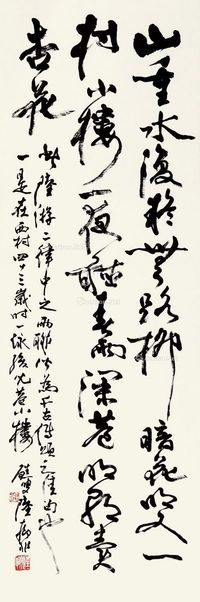 山重水復疑無路柳暗花明又一
村小樓一夜聽春雨深巷明朝賣
杏花
此陸游二律中之兩聯皆為千古傳頌之佳句也
一是在西村四十三歲時一詠孩兒巷小樓 陸抑非